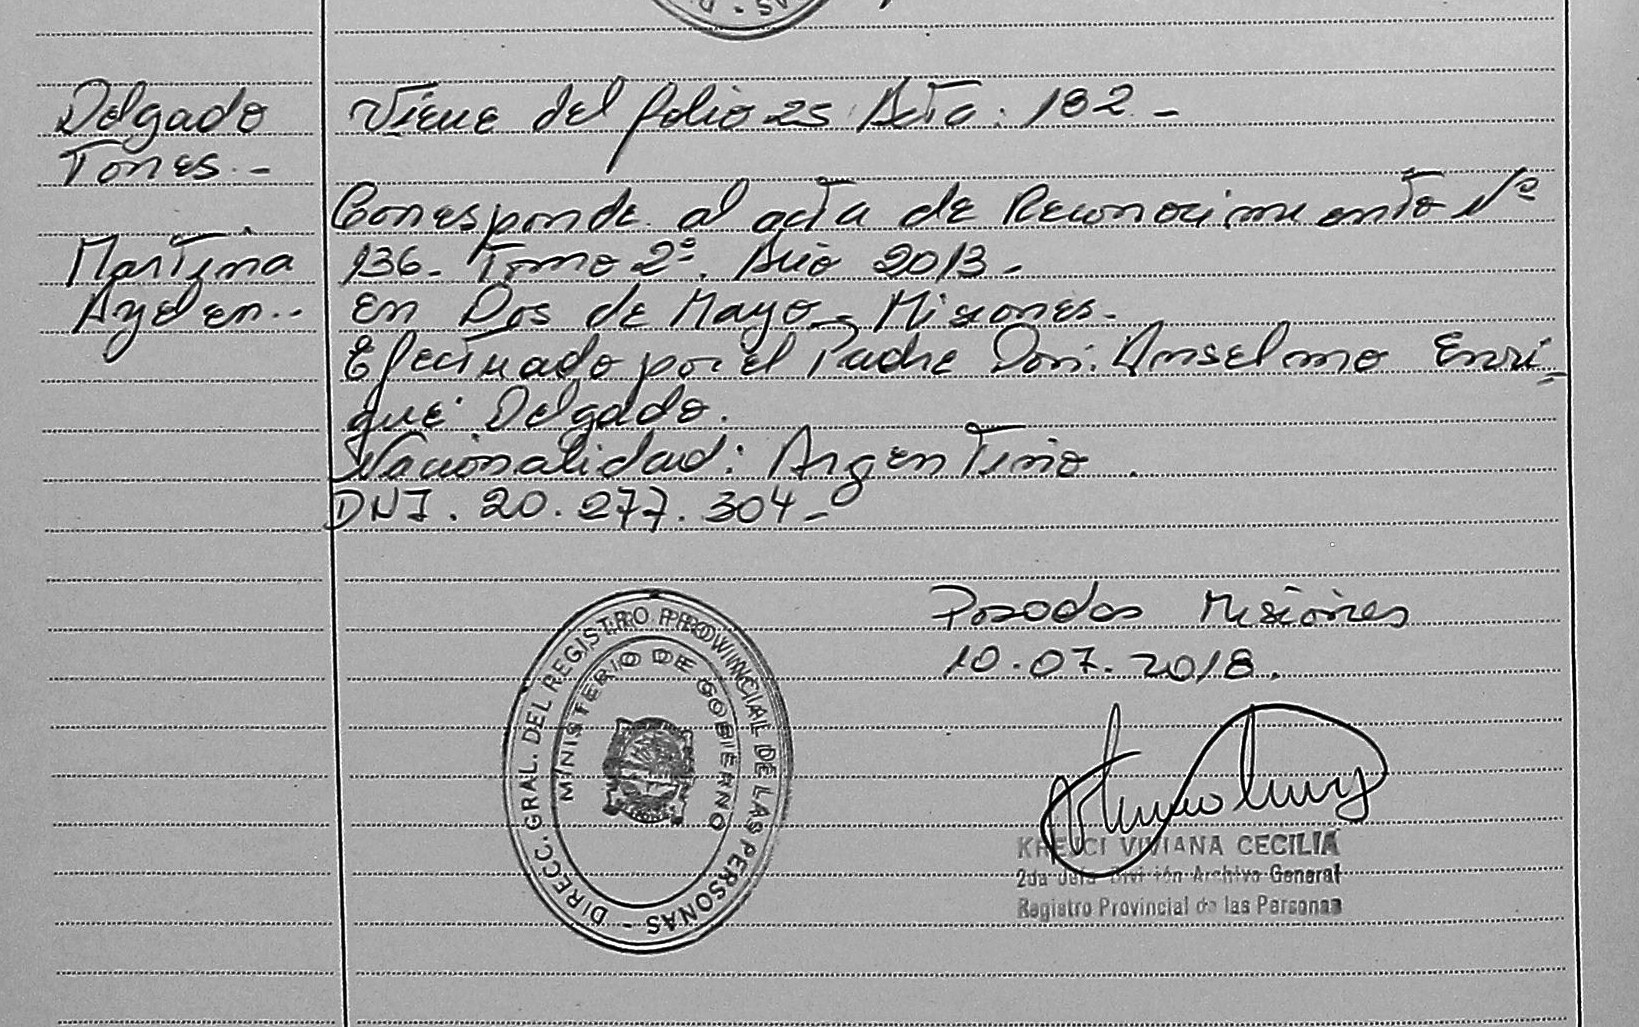 Delgado
Torres.-
Martina
Ayelen..
Viene del folio 25 Acta: 182.-
Corresponde al acta de Reconocimiento Nº
136- Tomo 2º. Año 2013-
en Dos de Mayo- Misiones-
Efectuado por el Padre Don: Anselmo Enri-
que Delgado.
Nacionalidad: Argentino.
DNI. 20.277.304-
Posadas Misiones
10.07.2018.
DIRECC. GRAL. DEL REGISTRO PROVINCIAL DE LAS PERSONAS -
MINISTERIO DE GOBIERNO
VIVIANA CECILIA
2da Jefa División Archivo General
Registro Provincial de las Personas